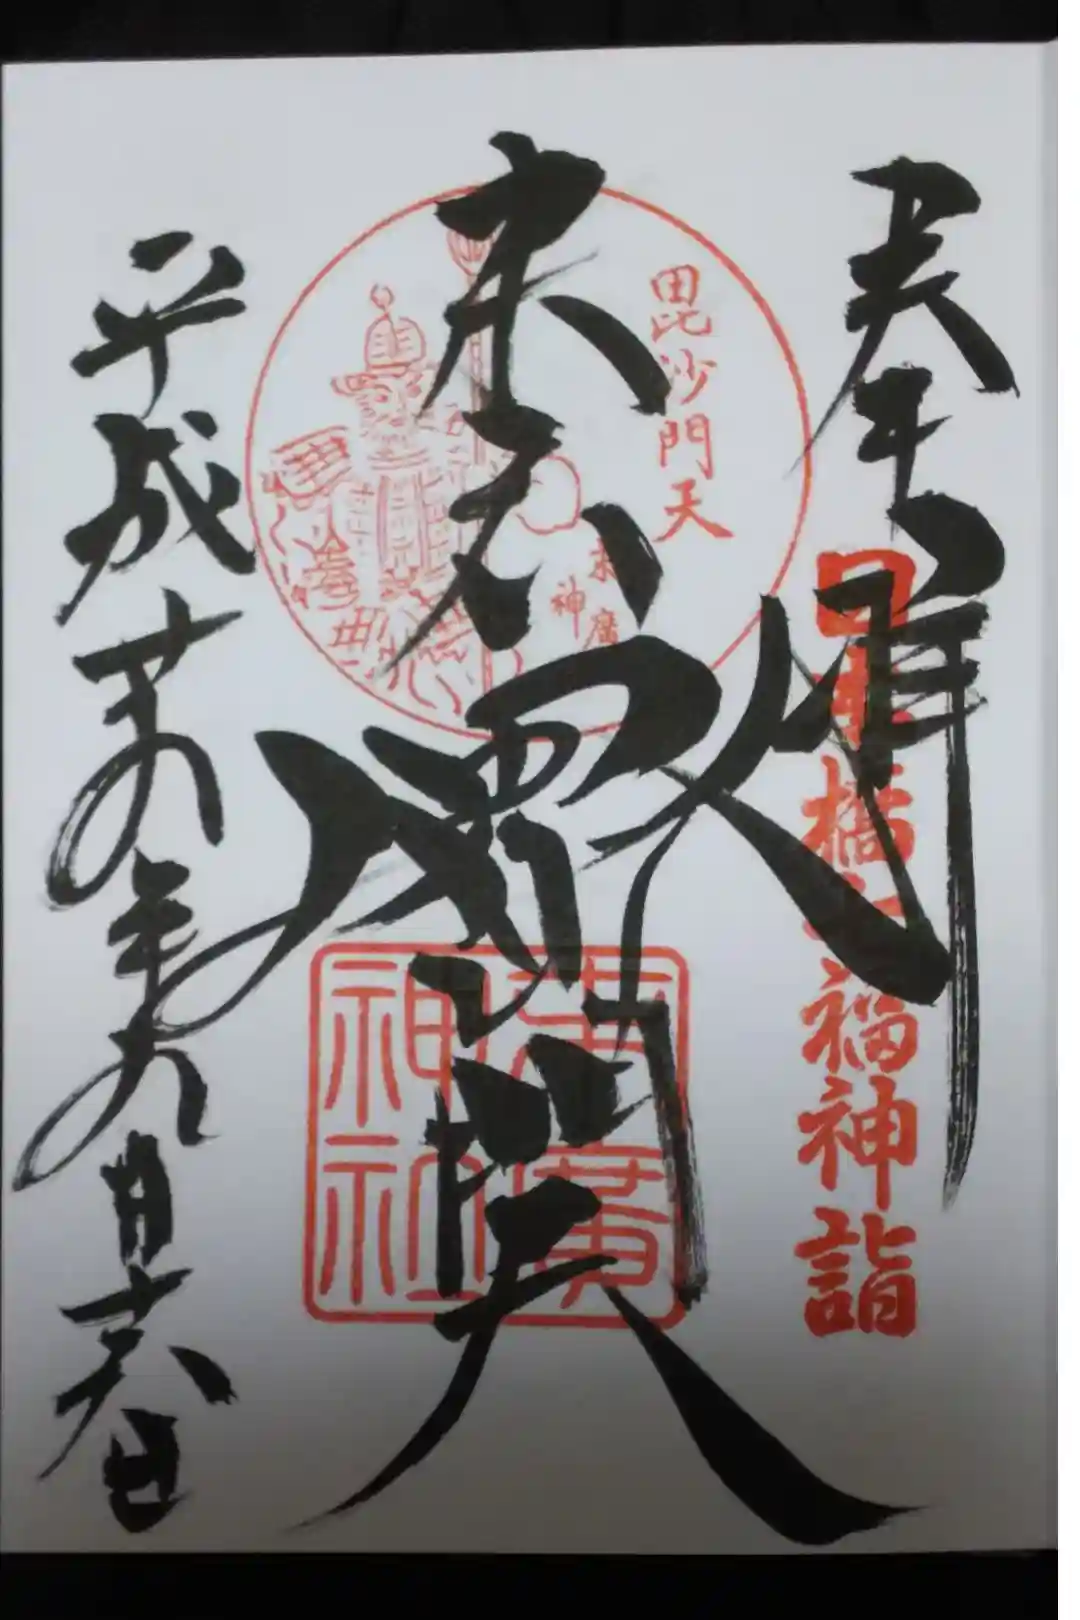 奉拝
日本橋七福神詣
毘沙門天
末廣神社
末広毘沙門天
末廣神社
平成 九年九月十六日